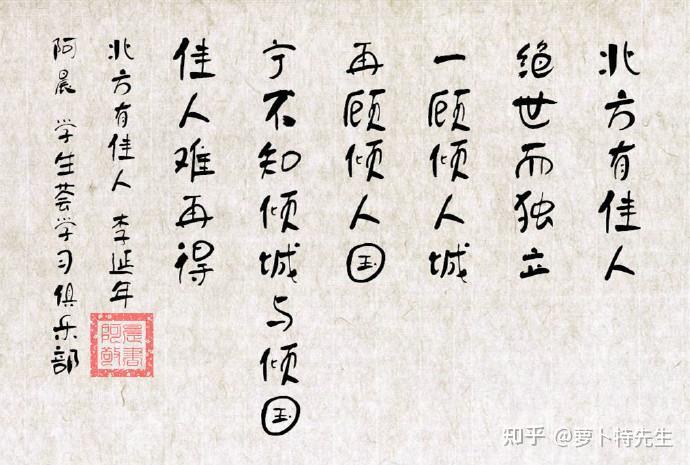 北方有佳人
绝世而独立
一顾倾人城
再顾倾人国
宁不知倾城与倾国
佳人难再得
北方有佳人 李延年
阿晨 学生荟学习俱乐部
阿晨敬书
知乎 @萝卜特先生